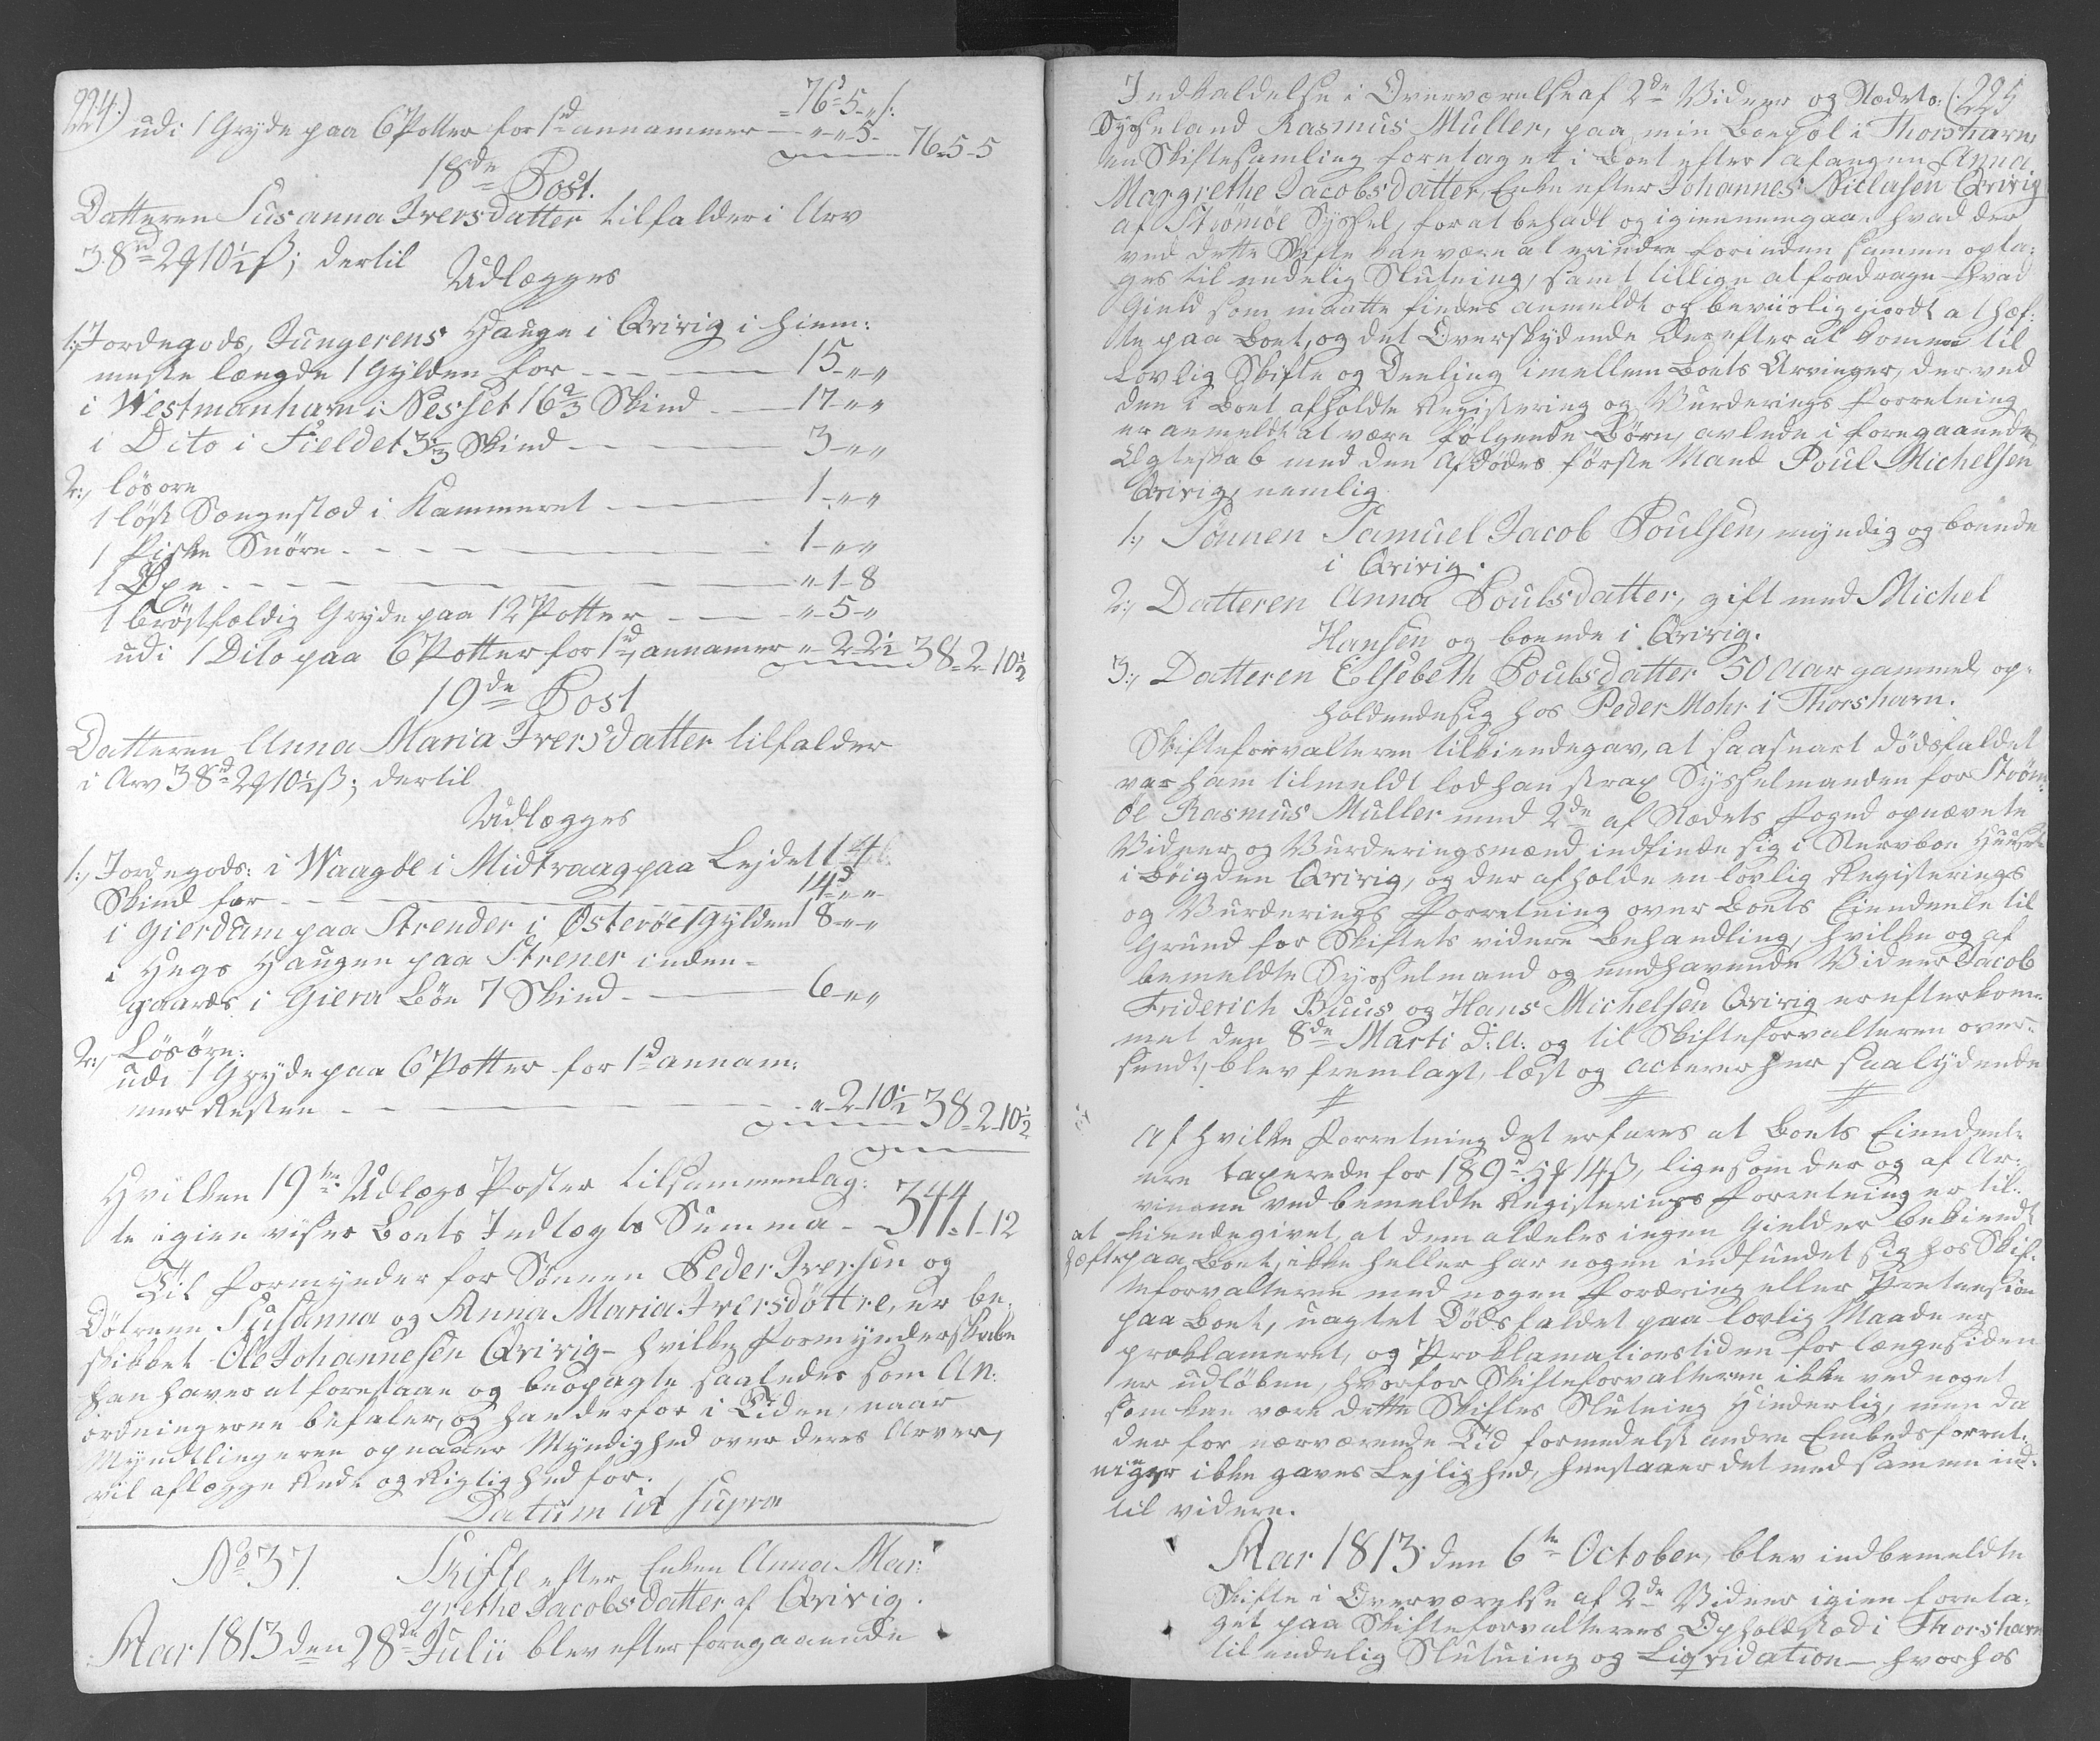 224.)
76-5-s:
udi 1 Gryde paa 6 Potter for 1 rd annammer — " " 5 - 76-5-5
18de Post.
Datteren Susanna Iversdatter tilfalder i Arv
38 rd 2 q 10½ ß; dertil
Udlægges
1:, Jordegods, Jungerens Hauge i Qvivig i hiem:
meste længde 1 Gylden for — 15-"-"
i Westmanhavn i Nesset 16 2/3 Skind — 17-"-"
i Dito i Fieldet 3 1/3 Skind — 3-"-"
2:, lösöre
1 löst Sængestæd i Kammeret — 1-"-"
1 Fiske Snöre — 1-"-"
1 Öxe — "-1-8
1 bröstfældig Gryde paa 12 Potter — "-5-"
udi 1 Dito paa 6 Potter for 1 rd, annamer "-2-2½ 38-2-10½
19de Post
Datteren Anna Maria Iversdatter tilfalder
i Arv 38 rd 2 q 10½ ß; dertil
Udlægges
1:, Jordegods: i Waagöe i Midtvaag paa Lejdet 14
Skind for — 14 d-"-"
i Gierdum paa Strender i Österöe 1 Gylden 18-"-"
i Hegs Haugen paa Strener inden-
gaards i Giera Böe 7 Skind — 6-"-"
2:, Lösöre:
udi 1 Gryde paa 6 Potter for 1 d annam:
mer Resten — "-2-10½ 38-2-10½
Hvilken 19 te Udlægs Poster tilsammenlag:
te igien viser Boets Indtægts Summa — 344-1-12
Til Formynder for Sönnen Peder Iversen og
Dötrene Susanna og Anna Maria Iversdöttre, er be-
skikket Ole Johannesen Qvivig — hvilken Formynderskabe
han haver at forestaae og beopagte saaledes som An:
ordningerne befaler, og han derfor i Tiden, naar
Myndtlingerne opnaaer Myndighed over deres Arver,
vil aflægge Rede og Rigtighed for.
Datum ut supra
No 37. Skifte efter Enken Anna Mar:
grethe Jacobsdatter af Qvivig.
Aar 1813 den 28de Julii blev efter foregaaende
Indkaldelse i Overværelse af 2de Vidner og Stædets (:225
Sysseland Rasmus Müller, paa min Boepæl i Thorshavn
en Skiftesamling foretaget i Boet efter afangne Anna
Margrethe Jacobsdatter, Enke efter Johannes Niclasen Qvivig
af Strömöe Syssel, for at behadt og igiennemgaae hvad der
ved dette Skifte kan være at erindre forinden samme opta-
ges til endelig Slutning, samt tillige at fradrage hvad
Gield som maatte findes anmeldt og beviislig giordt at hæf-
te paa Boet, og det Overskydende derefter at komme til
Lovlig Skifte og Deeling imellem Boets Arvinger, der ved
den i Boet afholdte Registering og Vurderings Forretning
er anmeldt at være følgende Börn, avlede i foregaaende
Egteskab med den Afdödes förste Mand Poul Michelsen
Qvivig, nemlig
1:, Sönnen Samuel Jacob Poulsen, myndig og boende
i Qvivig.
2:, Datteren Anna Poulsdatter, gift med Michel
Hansen og boende i Qvivig.
3:, Datteren Elsebeth Poulsdatter 50 Aar gammel op-
holdende sig hos Peder Mohr i Thorshavn.
Skifteforvalteren tilkiendegav, at saasnart Dödsfaldet
var ham tilmeldt lod han strax Sysselmanden for Ström-
öe Rasmus Müller med 2de af Stædets Foged opnævnte
Vidner og Vurderingsmænd indfinde sig i Stervboe Huuset
i Böigden Qvivig, og der afholde en lovlig Registerings
og Vurderings Forretning over Boets Eiendeele til
Grund for Skiftets videre Behandling, hvilke og af
bemeldte Sysselmand og medhavende Vidner Jacob
Friderich Buus og Hans Michelsen Qvivig er efterkom-
met den 8de Marti d: A: og til Skifteforvalteren over-
sendt, blev fremlagt, læst og acteres her saalydende
# # #
Af hvilke Forretning det erfares at Boets Eiendeele
ere taxerede for 189 rd 5 q 14 ß, ligesom der og af Ar-
vingene ved bemeldte Registerings Forretning er til-
kiendegivet, at dem aldeles ingen Gield er bekiendt
at hæfte paa Boet, ikke heller har nogen indfundet sig hos Skif-
teforvalteren med nogen Fordring eller Pretension
paa Boet, uagtet Dödsfaldet paa lovlig Maade er
proklameret, og Proklamationstiden for længesiden
er udlöben, hvorfor Skifteforvalteren ikke ved noget
som kan være dette Skiftes Slutning hinderlig, men da
der for nærværende Tid formedelst andre Embedsforret-
niger ikke gaves Lejlighed, henstaaer det med samme ind-
til videre.
Aar 1813 den 6te October, blev indbemeldte
Skifte i Overværelse af 2de Vidner igien foreta-
get paa Skifteforvalterens Opholdsted i Thorshavn
til endelig Slutning og Liqvidation — hvorhos